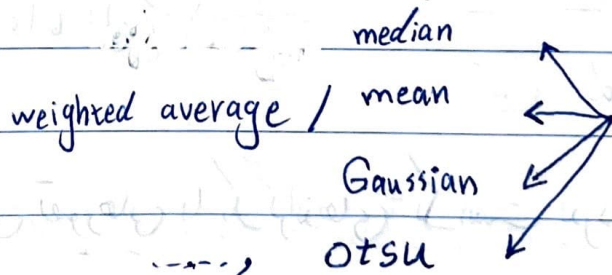 median
weighted average / mean
Gaussian
......, otsu